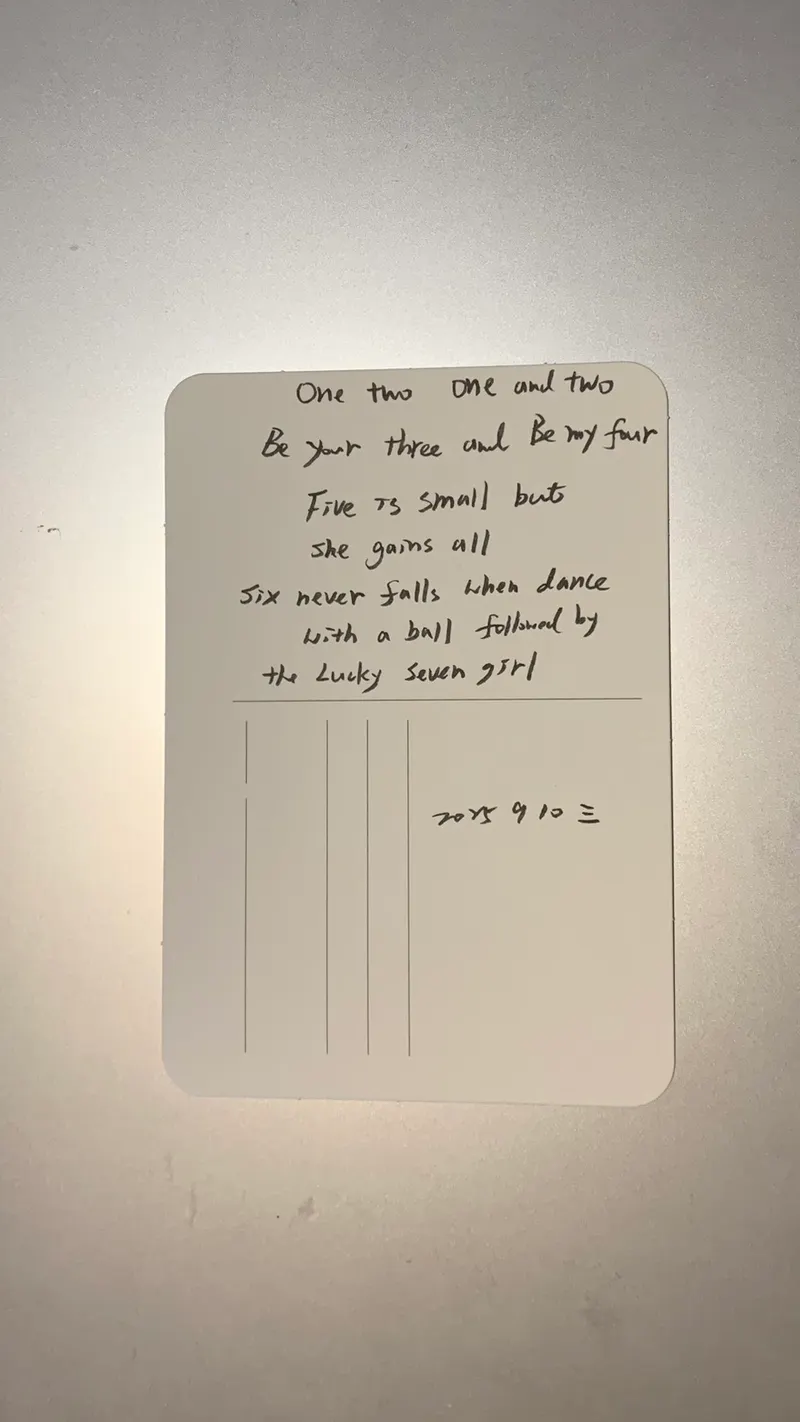 One two one and two
Be your three and Be my four
Five is small but
she gains all
six never falls when dance
with a ball followed by
the Lucky Seven girl
2025 9 10 三